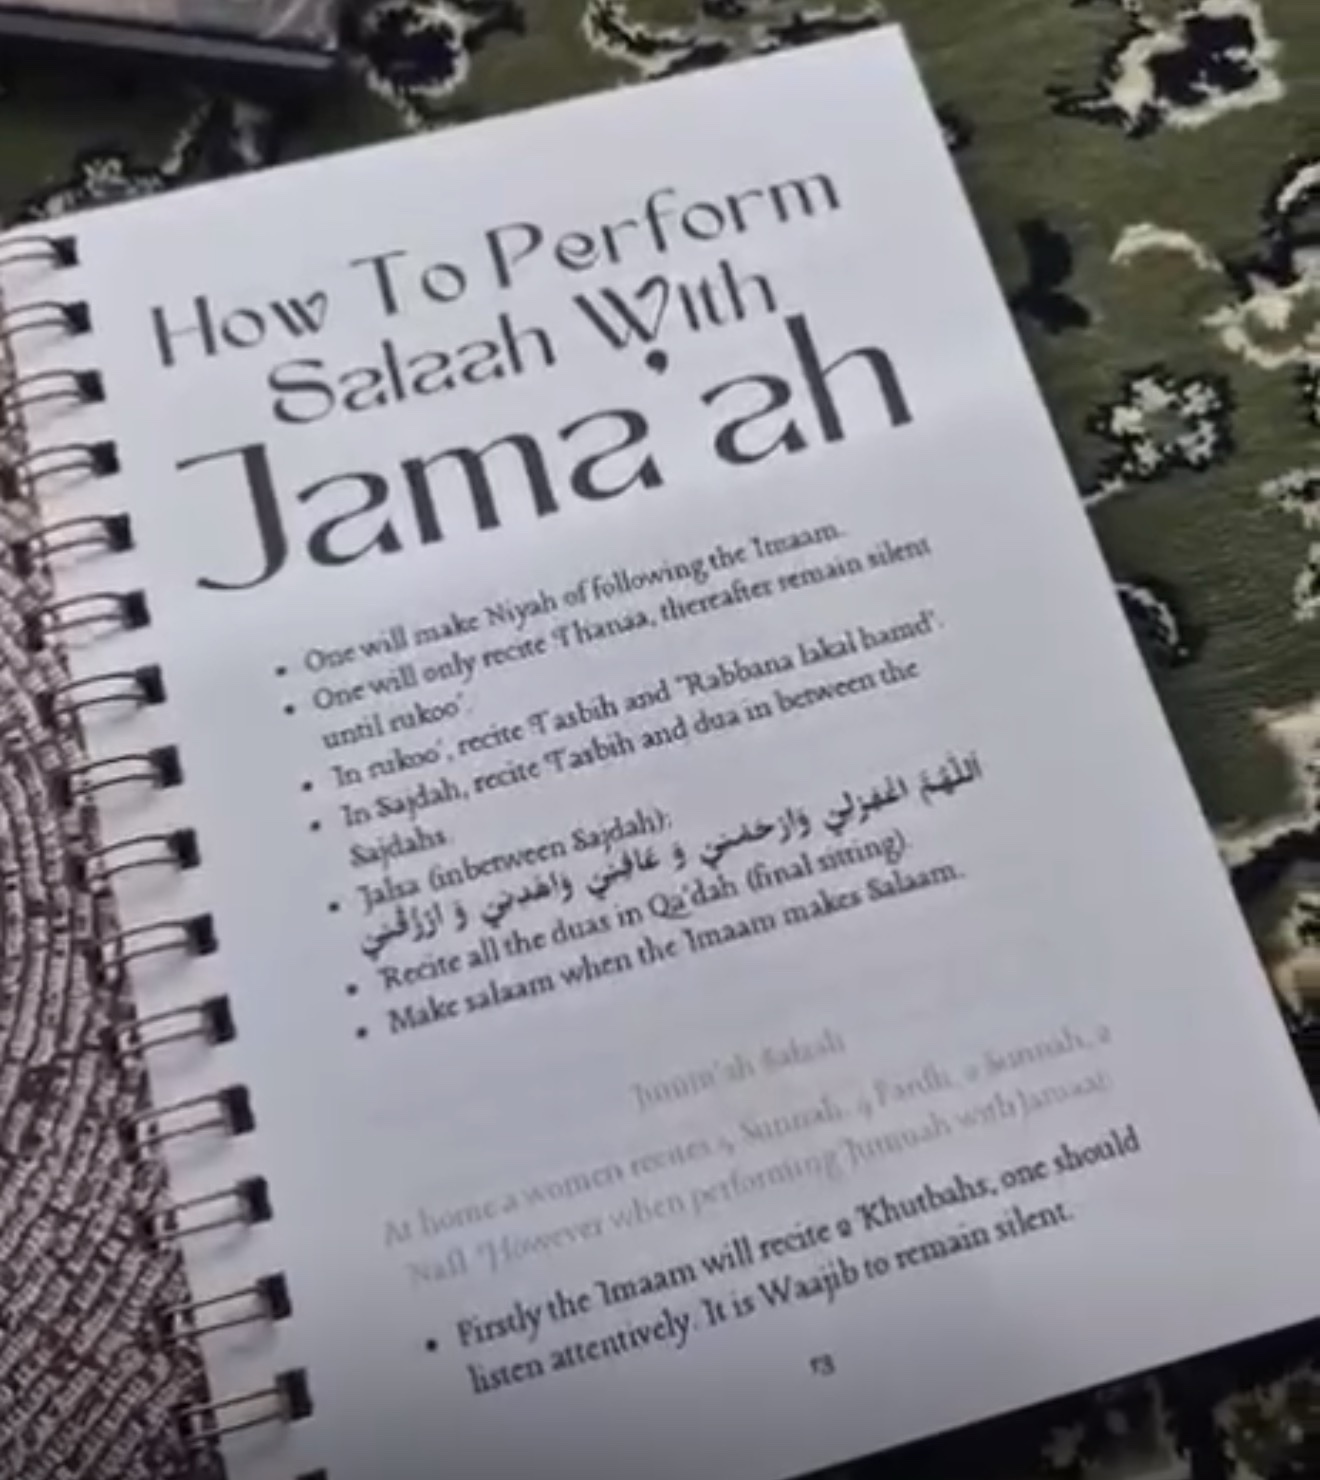 How To Perform
Salaah With
Jama'ah
• One will make Niyah of following the Imaam.
• One will only recite Thanaa, thereafter remain silent
until rukoo'.
• In rukoo', recite Tasbih and 'Rabbana lakal hamd'.
• In Sajdah, recite Tasbih and dua in between the
Sajdahs.
• Jalsa (inbetween Sajdah):
اَللّٰهُمَّ اغْفِرْلِي وَارْحَمْنِي وَ عَافِنِي وَاهْدِنِي وَ ارْزُقْنِي
• Recite all the duas in Qa'dah (final sitting).
• Make salaam when the Imaam makes Salaam.
Jumu'ah Salaah
At home a women recites 4 Sunnah, 4 Fardh, 2 Sunnah, 2
Nafl. However when performing Jumuah with Jamaat:
• Firstly the Imaam will recite 2 Khutbahs, one should
listen attentively. It is Waajib to remain silent.
13